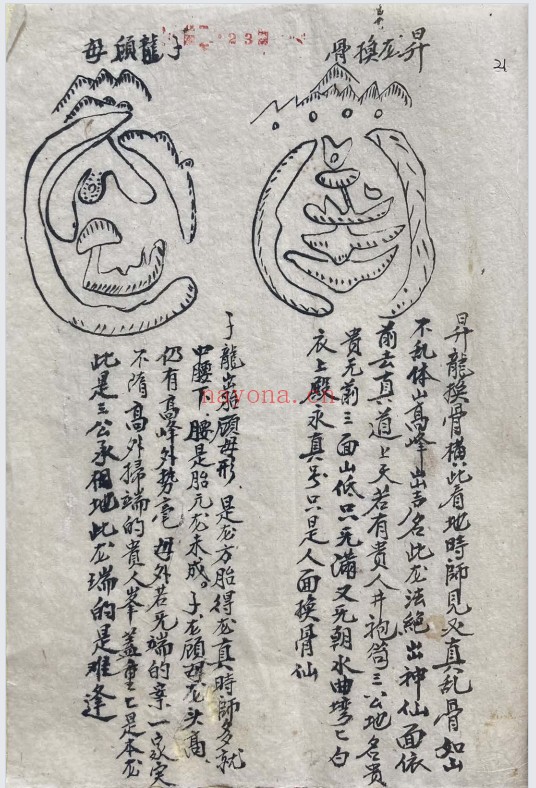 昇龙換骨
21
昇龍換骨横此看地時師見又真乱骨如山
不乱体山高峰出吉名此龙法絕出神仙面依
前去真道上天若有貴人井袍筒三公地名贵
貴无前三面山低只无满又无朝水曲塆七白
衣上殿永真另只是人面換骨仙
子龍頋母
23
子龍出胎頋母形是龙方胎得龙真時師多就
中腰下腰是胎元龙未成子龙頋母龙头高
仍有高峰外势毫母外若无端的案一家实
不隋高外掃端的貴人峯盖重七是本龙
此是三公承相地此龙瑞的是难逢
nayona.cn